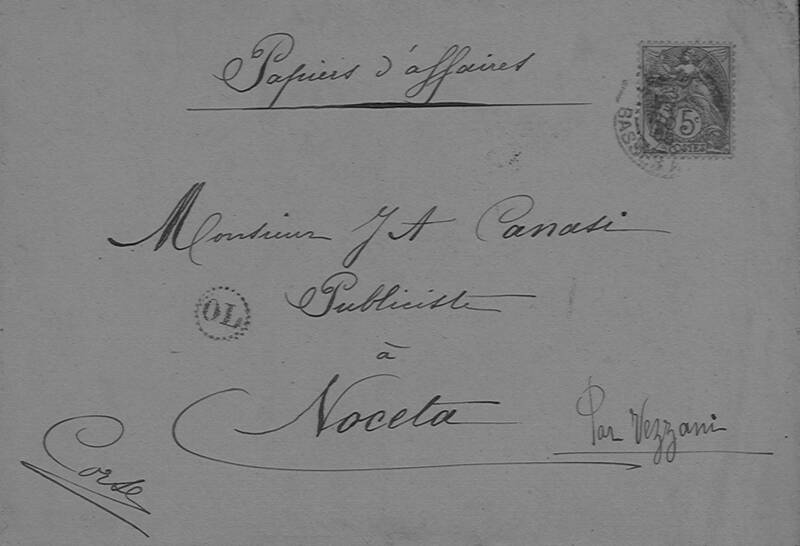 Papiers d'affaires
5c
POSTES
Monsieur J A Canasi
Publiciste
OL
à
Noceta
Par Vezzani
Corse